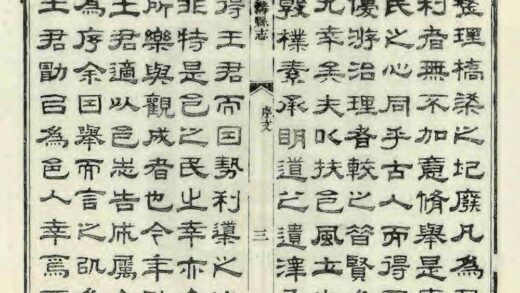 整理橋梁之圮廢凡為
利者無不加意脩舉是
民之心同乎古人而得
優游治理者較之昔賢
尤幸矣夫以扶邑風立
敦樸素承明道之遺澤
縣志
序文
三
得王君而因勢利導之
非特是邑之民之幸亦
所樂與觀成者也今年
王君適以邑志告成屬
為序余因舉而言之
王君勖㠯為邑人幸焉